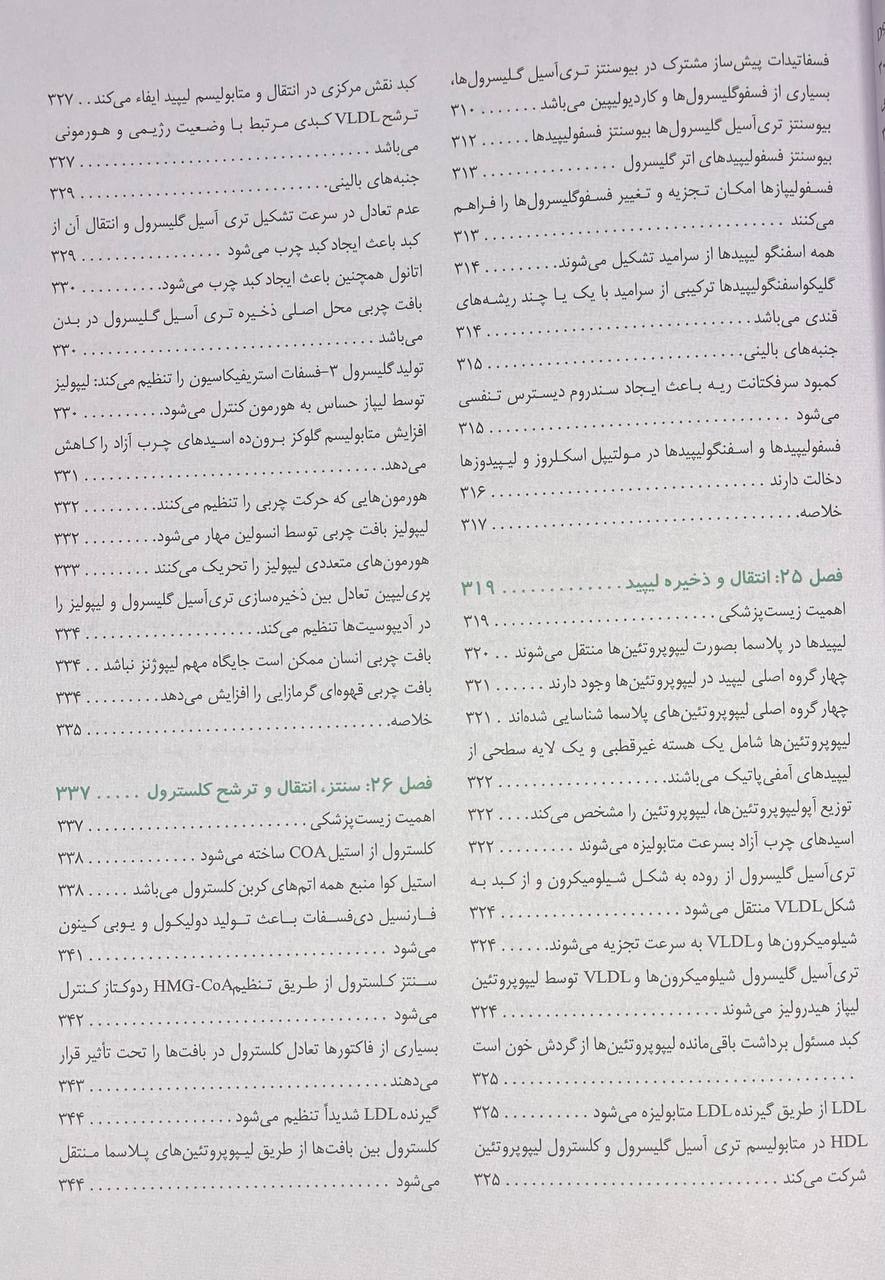 فسفاتیدات پیش‌ساز مشترک در بیوسنتز تری‌آسیل گلیسرول‌ها،
بسیاری از فسفوگلیسرول‌ها و کاردیولیپین می‌باشد . . . . . . . ۳۱۰
بیوسنتز تری‌آسیل گلیسرول‌ها بیوسنتز فسفولیپیدها . . . . . . ۳۱۲
بیوسنتز فسفولیپیدهای اتر گلیسرول . . . . . . . . . . . . . . . . ۳۱۳
فسفولیپازها امکان تجزیه و تغییر فسفوگلیسرول‌ها را فراهم
می‌کنند . . . . . . . . . . . . . . . . . . . . . . . . . . . . . . . . . . . ۳۱۳
همه اسفنگو لیپیدها از سرامید تشکیل می‌شوند. . . . . . . . . . ۳۱۴
گلیکواسفنگولیپیدها ترکیبی از سرامید با یک یا چند ریشه‌های
قندی می‌باشد . . . . . . . . . . . . . . . . . . . . . . . . . . . . . . . ۳۱۴
جنبه‌های بالینی. . . . . . . . . . . . . . . . . . . . . . . . . . . . . . ۳۱۵
کمبود سرفکتانت ریه باعث ایجاد سندروم دیسترس تنفسی
می‌شود . . . . . . . . . . . . . . . . . . . . . . . . . . . . . . . . . . . ۳۱۵
فسفولیپیدها و اسفنگولیپیدها در مولتیپل اسکلروز و لیپیدوزها
دخالت دارند . . . . . . . . . . . . . . . . . . . . . . . . . . . . . . . ۳۱۶
خلاصه. . . . . . . . . . . . . . . . . . . . . . . . . . . . . . . . . . . . ۳۱۷
فصل ۲۵: انتقال و ذخیره لیپید . . . . . . . . . . . . . ۳۱۹
اهمیت زیست‌پزشکی . . . . . . . . . . . . . . . . . . . . . . . . . . ۳۱۹
لیپیدها در پلاسما بصورت لیپوپروتئین‌ها منتقل می‌شوند . . ۳۲۰
چهار گروه اصلی لیپید در لیپوپروتئین‌ها وجود دارند . . . . . . ۳۲۱
چهار گروه اصلی لیپوپروتئین‌های پلاسما شناسایی شده‌اند . ۳۲۱
لیپوپروتئین‌ها شامل یک هسته غیرقطبی و یک لایه سطحی از
لیپیدهای آمفی‌پاتیک می‌باشند. . . . . . . . . . . . . . . . . . . . ۳۲۲
توزیع آپولیپوپروتئین‌ها، لیپوپروتئین را مشخص می‌کند. . . . ۳۲۲
اسیدهای چرب آزاد بسرعت متابولیزه می‌شوند . . . . . . . . . ۳۲۲
تری‌آسیل گلیسرول از روده به شکل شیلومیکرون و از کبد به
شکل VLDL منتقل می‌شود . . . . . . . . . . . . . . . . . . . . . ۳۲۴
شیلومیکرون‌ها و VLDL به سرعت تجزیه می‌شوند. . . . . . ۳۲۴
تری‌آسیل گلیسرول شیلومیکرون‌ها و VLDL توسط لیپوپروتئین
لیپاز هیدرولیز می‌شوند . . . . . . . . . . . . . . . . . . . . . . . . ۳۲۴
کبد مسئول برداشت باقی‌مانده لیپوپروتئین‌ها از گردش خون است
. . . . . . . . . . . . . . . . . . . . . . . . . . . . . . . . . . . . . . . . ۳۲۵
LDL از طریق گیرنده LDL متابولیزه می‌شود . . . . . . . . . . ۳۲۵
HDL در متابولیسم تری آسیل گلیسرول و کلسترول لیپوپروتئین
شرکت می‌کند . . . . . . . . . . . . . . . . . . . . . . . . . . . . . . ۳۲۵
کبد نقش مرکزی در انتقال و متابولیسم لیپید ایفاء می‌کند . . ۳۲۷
ترشح VLDL کبدی مرتبط با وضعیت رژیمی و هورمونی
می‌باشد . . . . . . . . . . . . . . . . . . . . . . . . . . . . . . . . . . ۳۲۷
جنبه‌های بالینی. . . . . . . . . . . . . . . . . . . . . . . . . . . . . . ۳۲۹
عدم تعادل در سرعت تشکیل تری آسیل گلیسرول و انتقال آن از
کبد باعث ایجاد کبد چرب می‌شود . . . . . . . . . . . . . . . . . ۳۲۹
اتانول همچنین باعث ایجاد کبد چرب می‌شود. . . . . . . . . . ۳۳۰
بافت چربی محل اصلی ذخیره تری آسیل گلیسرول در بدن
می‌باشد . . . . . . . . . . . . . . . . . . . . . . . . . . . . . . . . . . ۳۳۰
تولید گلیسرول ۳-فسفات استریفیکاسیون را تنظیم می‌کند: لیپولیز
توسط لیپاز حساس به هورمون کنترل می‌شود. . . . . . . . . . ۳۳۰
افزایش متابولیسم گلوکز برون‌ده اسیدهای چرب آزاد را کاهش
می‌دهد. . . . . . . . . . . . . . . . . . . . . . . . . . . . . . . . . . . ۳۳۱
هورمون‌هایی که حرکت چربی را تنظیم می‌کنند. . . . . . . . . ۳۳۲
لیپولیز بافت چربی توسط انسولین مهار می‌شود. . . . . . . . . ۳۳۲
هورمون‌های متعددی لیپولیز را تحریک می‌کنند . . . . . . . . ۳۳۳
پری‌لیپین تعادل بین ذخیره‌سازی تری‌آسیل گلیسرول و لیپولیز را
در آدیپوسیت‌ها تنظیم می‌کند. . . . . . . . . . . . . . . . . . . . ۳۳۴
بافت چربی انسان ممکن است جایگاه مهم لیپوژنز نباشد . . ۳۳۴
بافت چربی قهوه‌ای گرمازایی را افزایش می‌دهد. . . . . . . . . ۳۳۴
خلاصه. . . . . . . . . . . . . . . . . . . . . . . . . . . . . . . . . . . . ۳۳۵
فصل ۲۶: سنتز، انتقال و ترشح کلسترول . . . . . ۳۳۷
اهمیت زیست‌پزشکی . . . . . . . . . . . . . . . . . . . . . . . . . . ۳۳۷
کلسترول از استیل COA ساخته می‌شود . . . . . . . . . . . . . ۳۳۸
استیل کوا منبع همه اتم‌های کربن کلسترول می‌باشد . . . . . ۳۳۸
فارنسیل دی‌فسفات باعث تولید دولیکول و یوبی کینون
می‌شود . . . . . . . . . . . . . . . . . . . . . . . . . . . . . . . . . . ۳۴۱
سنتز کلسترول از طریق تنظیم HMG-CoA ردوکتاز کنترل
می‌شود . . . . . . . . . . . . . . . . . . . . . . . . . . . . . . . . . . ۳۴۲
بسیاری از فاکتورها تعادل کلسترول در بافت‌ها را تحت تأثیر قرار
می‌دهند . . . . . . . . . . . . . . . . . . . . . . . . . . . . . . . . . . ۳۴۳
گیرنده LDL شدیداً تنظیم می‌شود . . . . . . . . . . . . . . . . . ۳۴۴
کلسترول بین بافت‌ها از طریق لیپوپروتئین‌های پلاسما منتقل
می‌شود . . . . . . . . . . . . . . . . . . . . . . . . . . . . . . . . . . ۳۴۴